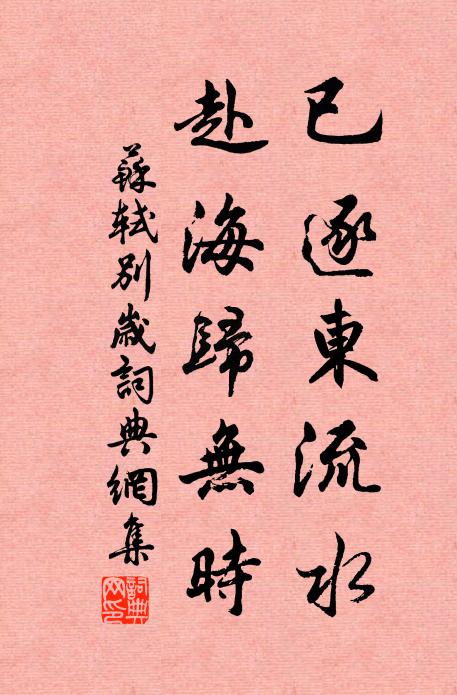 已逐東流水
赴海歸無時
蘇軾別歲詞典網集
詞典
网印